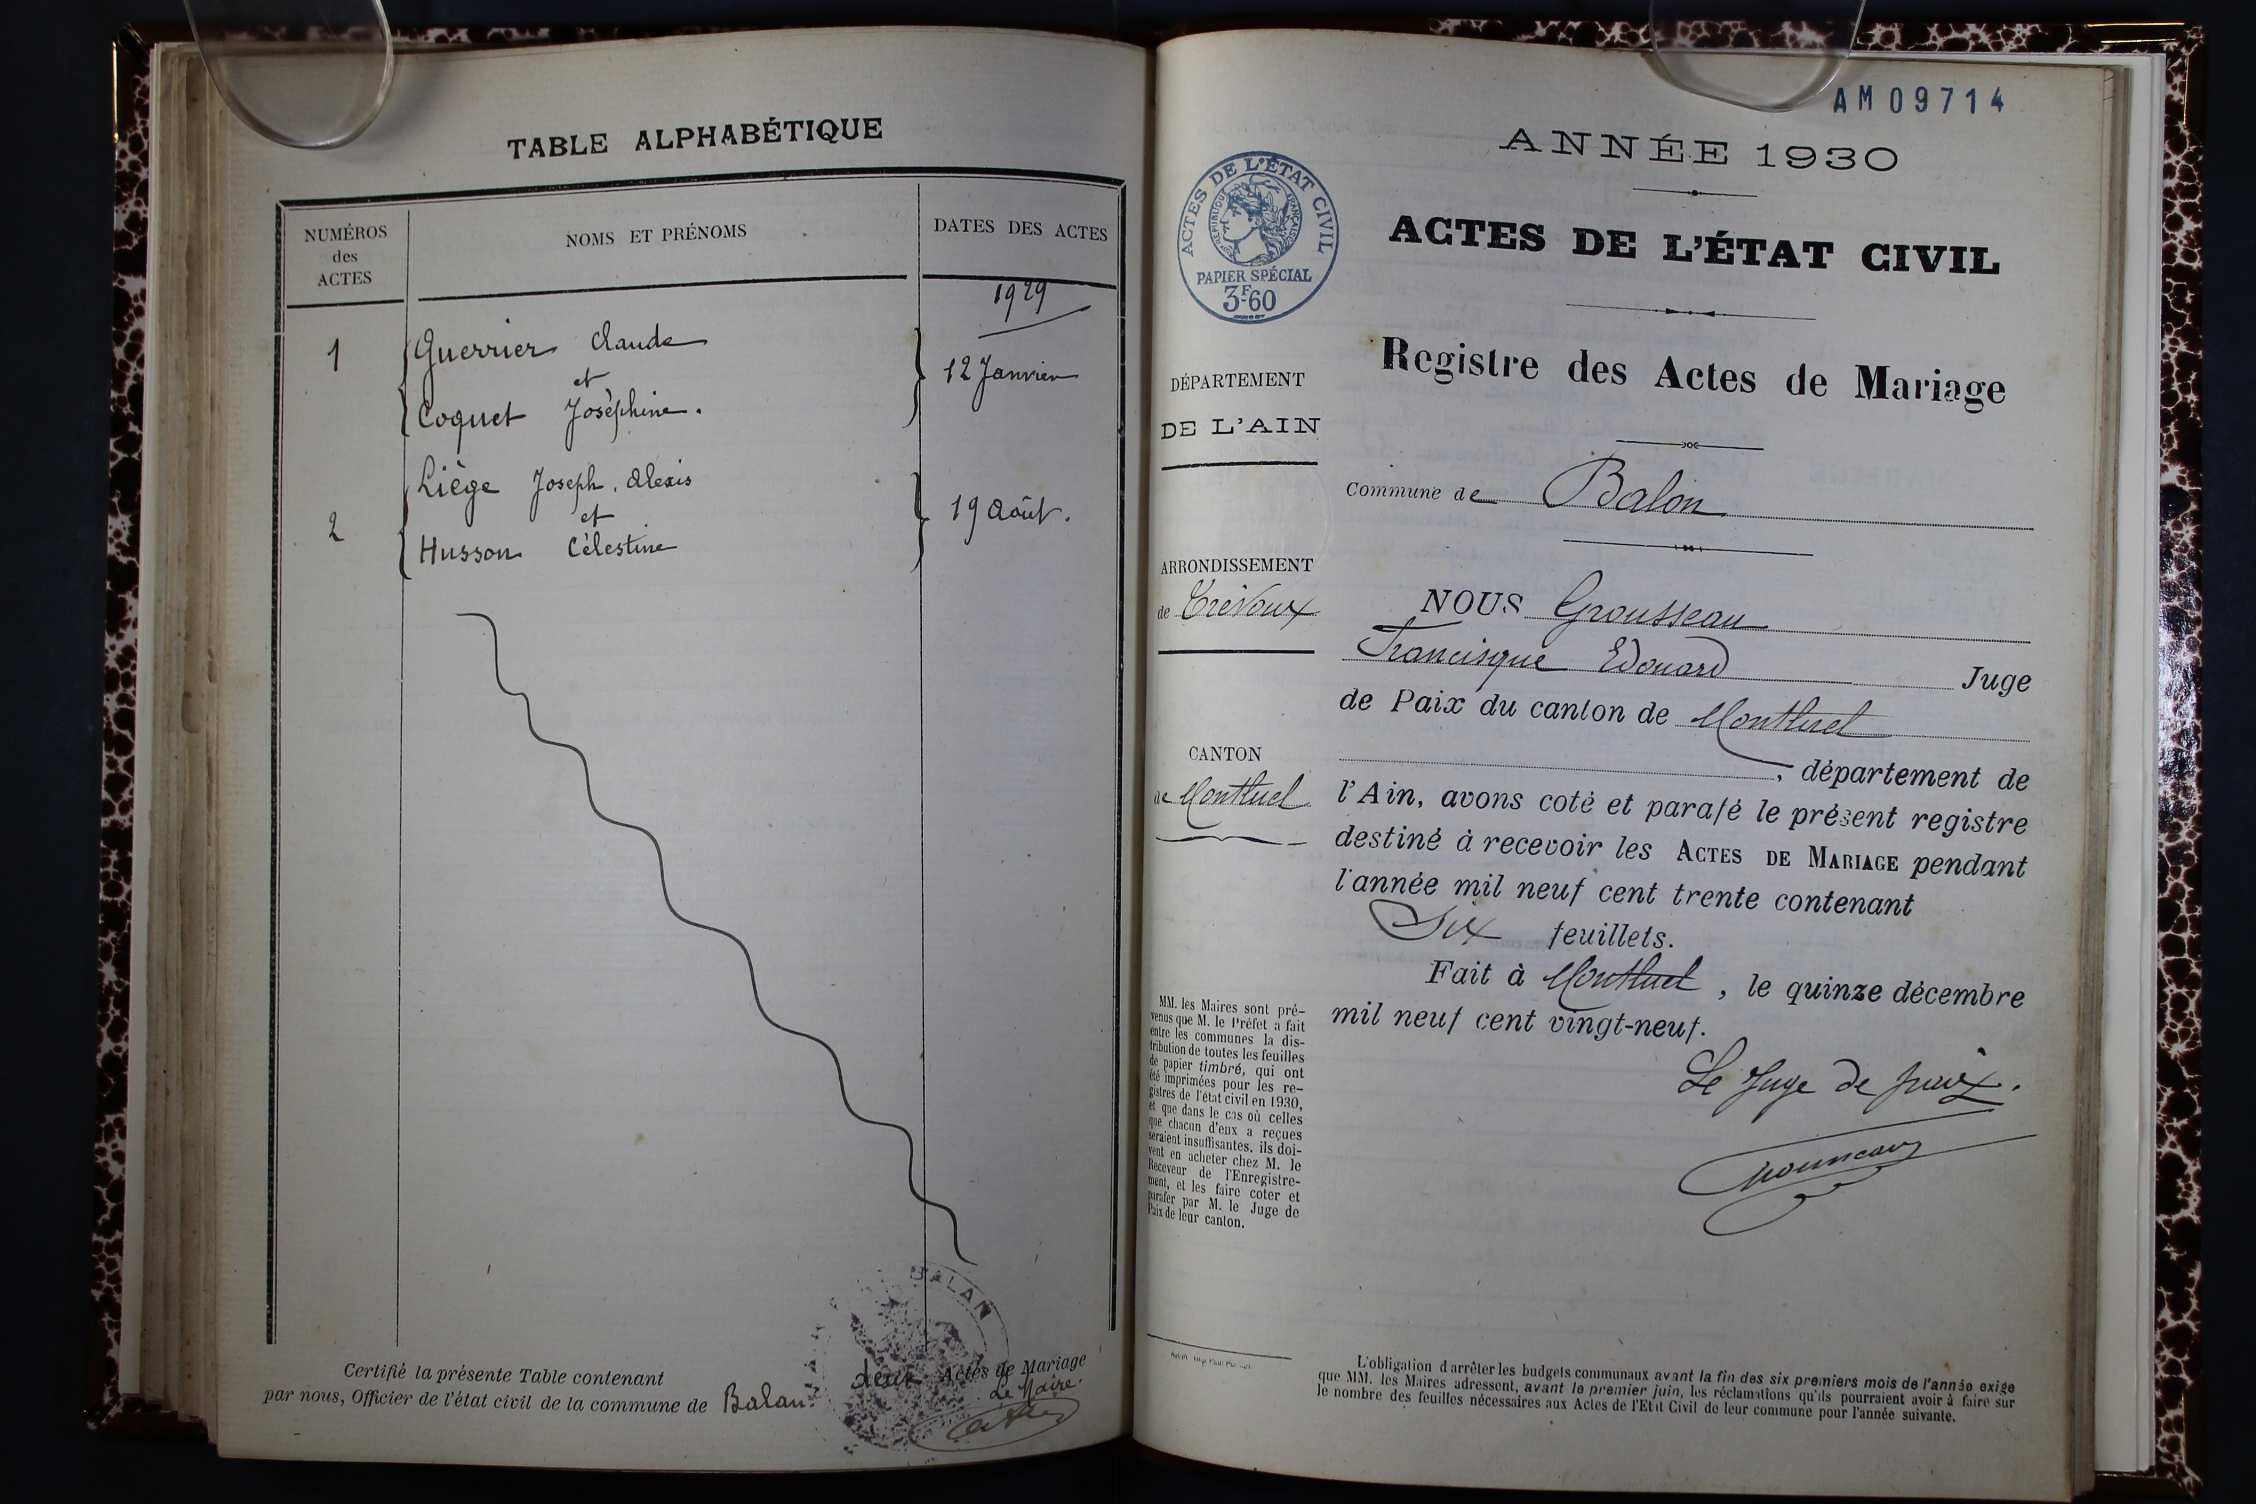 TABLE ALPHABÉTIQUE
NUMÉROS
des
ACTES
NOMS ET PRÉNOMS
DATES DES ACTES
1929
1
Guerrier Claude
et
Coquet Josèphine.
12 Janvier
2
Liège Joseph. Alexis
et
Husson Célestine
19 Août.
BALAN
Certifié la présente Table contenant deux Actes de Mariage
par nous, Officier de l'état civil de la commune de Balan
Le Maire.
AM09714
ANNÉE 1930
ACTES DE L'ÉTAT CIVIL
RÉPUBLIQUE FRANÇAISE
PAPIER SPÉCIAL
3F.60
ACTES DE L'ÉTAT CIVIL
Registre des Actes de Mariage
DÉPARTEMENT
DE L'AIN
Commune de Balan
ARRONDISSEMENT
de Trévoux
CANTON
de Montluel
NOUS Grousseau
Francisque Edouard Juge
de Paix du canton de Montluel
, département de
l'Ain, avons coté et parafé le présent registre
destiné à recevoir les ACTES DE MARIAGE pendant
l'année mil neuf cent trente contenant
Six feuillets.
Fait à Montluel, le quinze décembre
mil neuf cent vingt-neuf.
Le Juge de paix.
MM. les Maires sont pré-
venus que M. le Préfet a fait
entre les communes la dis-
tribution de toutes les feuilles
de papier timbré, qui ont
été imprimées pour les re-
gistres de l'état civil en 1930,
et que dans le cas où celles
que chacun d'eux a reçues
seraient insuffisantes, ils doi-
vent en acheter chez M. le
Receveur de l'Enregistre-
ment, et les faire coter et
parafer par M. le Juge de
Paix de leur canton.
L'obligation d'arrêter les budgets communaux avant la fin des six premiers mois de l'année exige
que MM. les Maires adressent, avant le premier juin, les réclamations qu'ils pourraient avoir à faire sur
le nombre des feuilles nécessaires aux Actes de l'Etat Civil de leur commune pour l'année suivante.